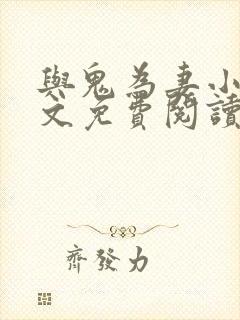 與鬼為妻小
文免費閱讀
齊發力